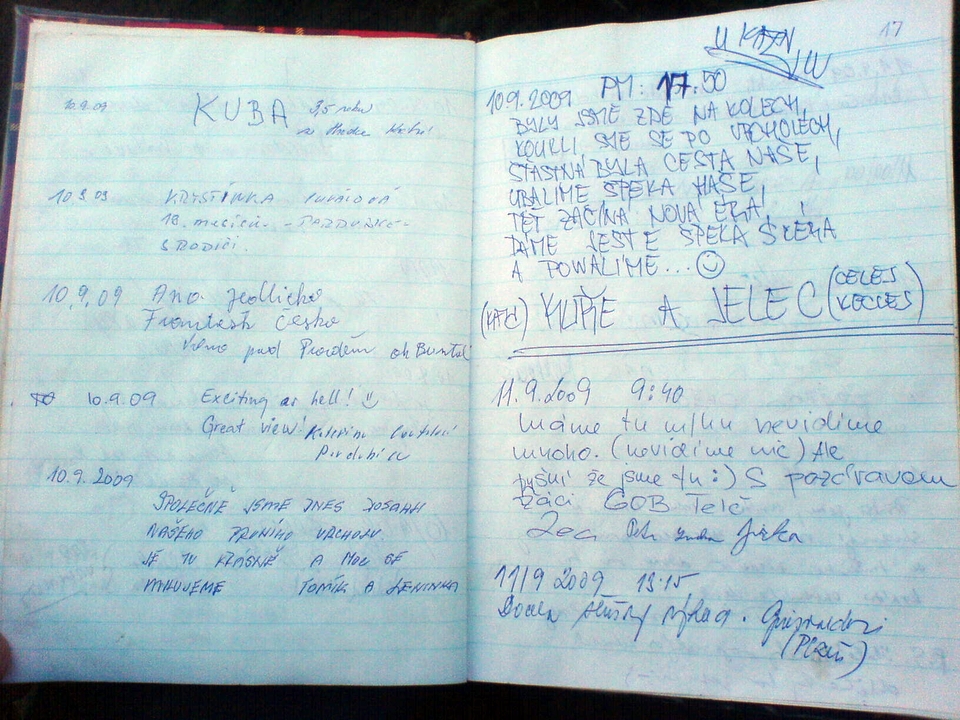 10.9.09 KUBA 3,5 roku
10.9.09 KRYSTÝNKA
18. měsíců - PARDUBICE -
S RODIČI.
10.9.09 Ano. Jedlička
František Česka
pod Pradědem ok Bruntál
10.9.09 Exciting as hell! ☺
Great view!
Pardubice
10.9.2009
SPOLEČNĚ JSME DNES DOSÁHLI
NAŠEHO PRVNÍHO VRCHOLU.
JE TU KRÁSNĚ A MOC SE
MILUJEME TOMÍK A LENINKA
17
10.9.2009 PM: 17:50
BYLY JSME ZDE NA KOLECH,
KOUKLI SME SE PO VRCHOLECH,
ŠŤASTNÁ BYLA CESTA NAŠE,
UBALIME ŠPEKA HAŠE,
TEŤ ZAČÍNA NOVA ÉRA,
DÁME JEŠTE ŠPEKA ŠKÉRA
A POWALÍME... ☺
KUŘE A JELEC (CELES KECLES)
11.9.2009 9:40
Máme tu mlhu nevidíme
mnoho. (nevidíme nic) Ale
pyšní že jsme tu :) S pozdravem
žáci GOB Telč
Jirka
11/9 2009 13:15
Docela slušný výhled.
(Plzeň)